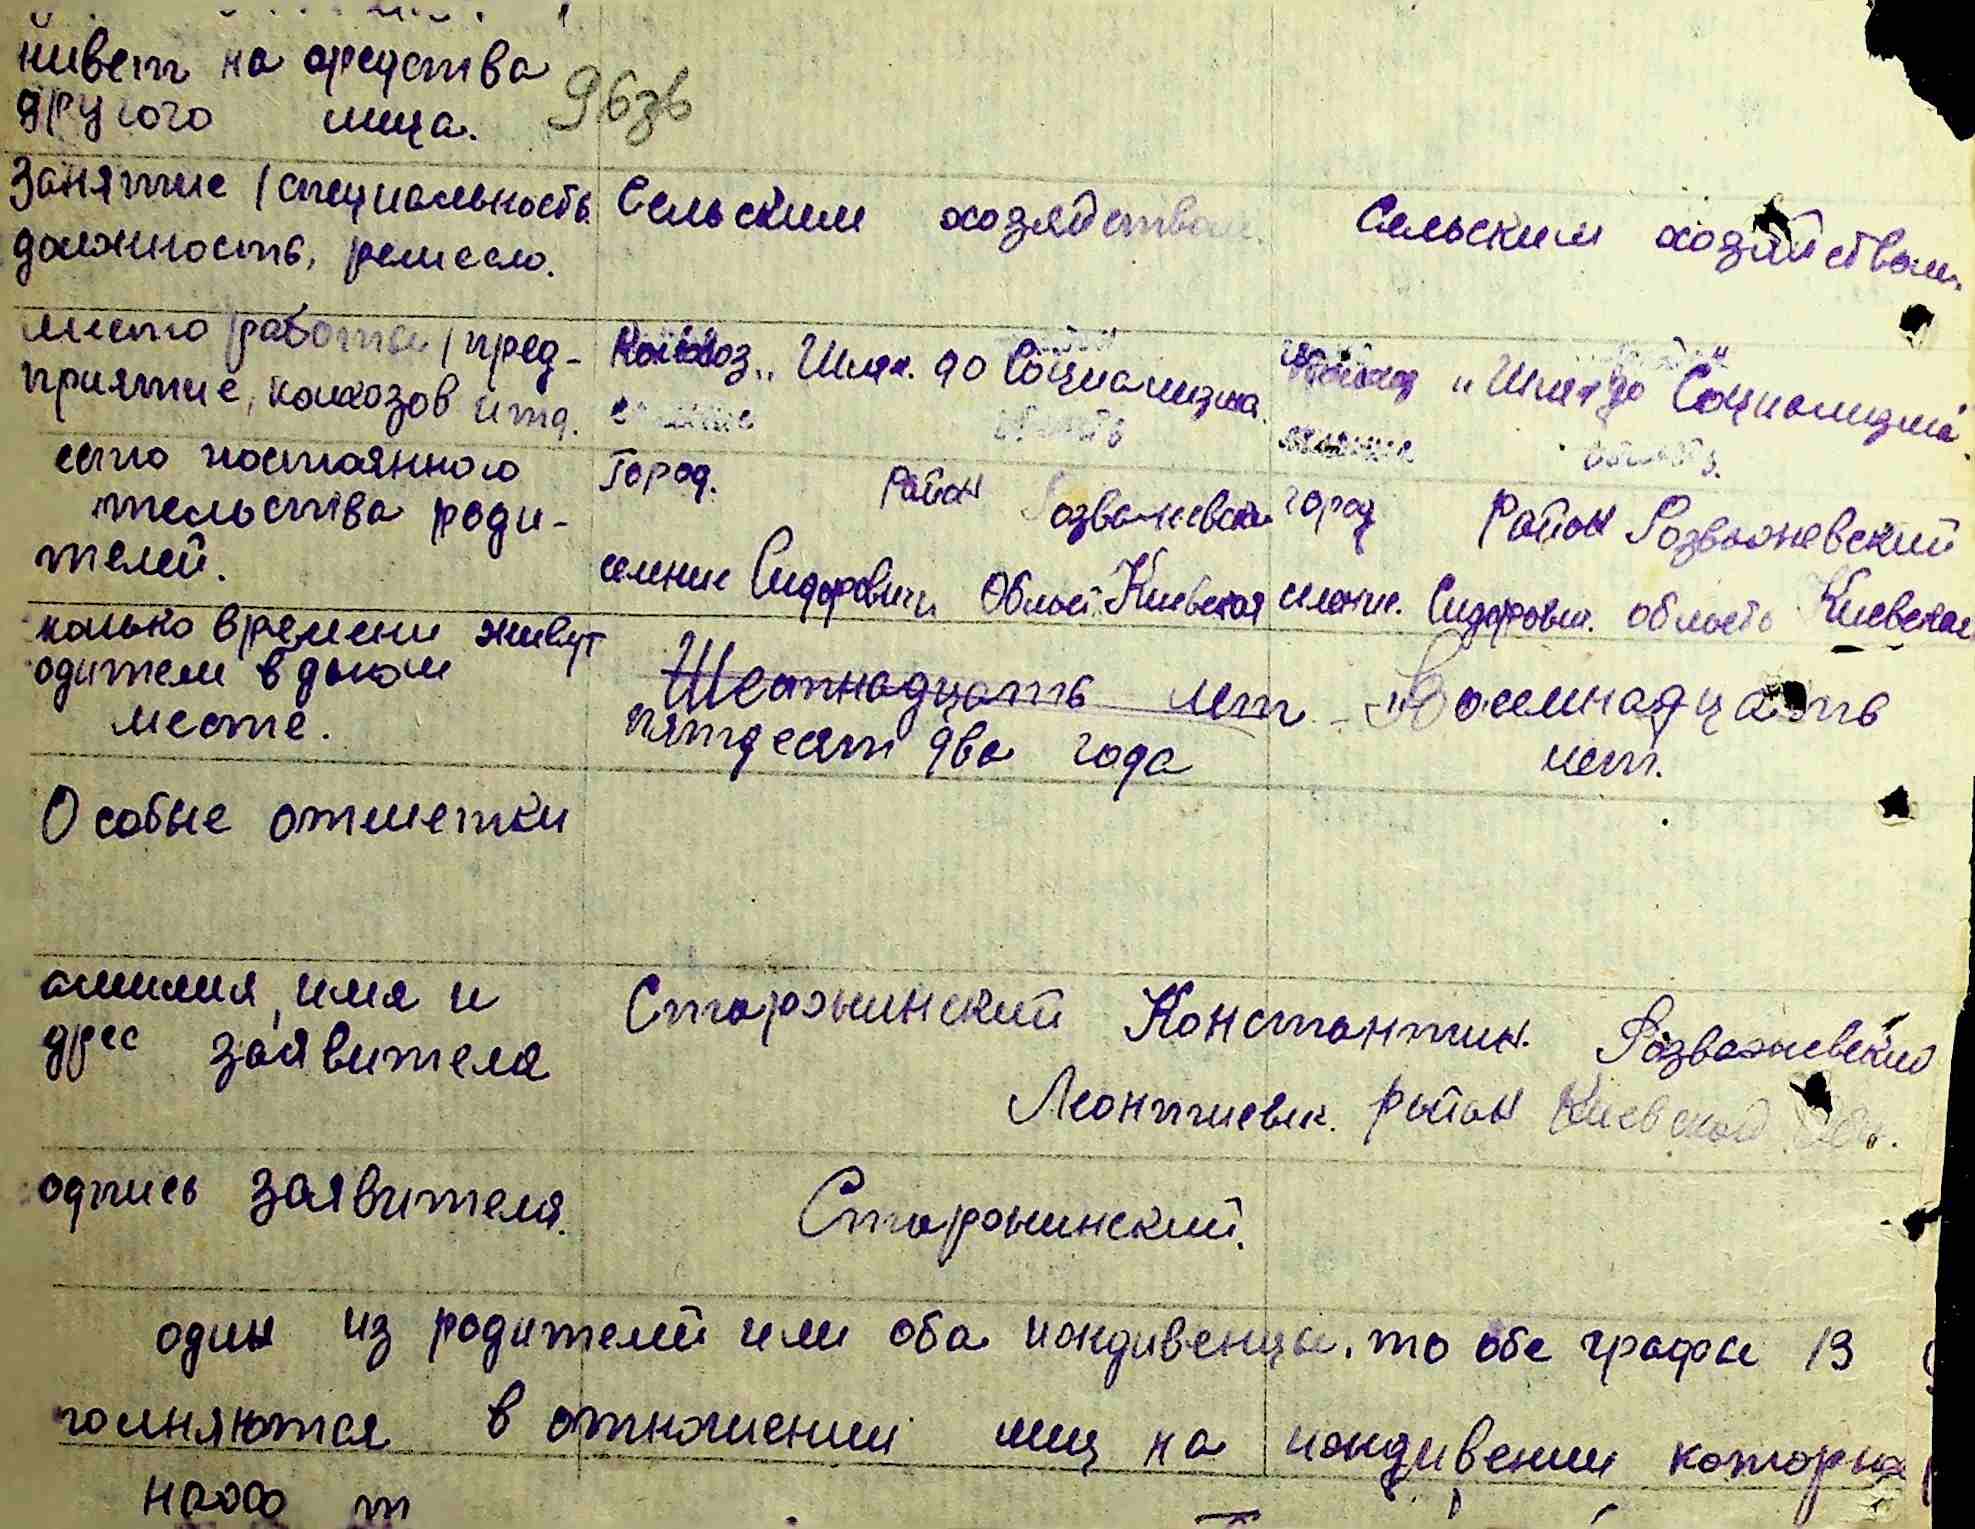 живет на средства
другого лица.
96зв
Занятие (специальность
должность, ремесло.
Сельским хозяйством.
Сельским хозяйством.
место работы (пред-
приятие, колхозов итд.
Колхоз „Шлях до Социализма
„Шлях до Социализма
сто постоянного
тельства роди-
телей.
Город. район Розважевски
селение Сидоровичи Област Киевская
город район Розважевский
селение. Сидорович. область Киевская
колько времени живут
одители в даном
месте.
Шестнадцать лет
пятдесят два года
Восемнадцать
лет.
Особые отметки
амилия, имя и
дрес заявителя
Сторожинский Константин. Розважевский
Леонтиевич. район Киевской обл.
одпись заявителя.
Сторожинский.
один из родителей или оба иждивенцы. то обе графы 13
полняются в отношении лиц на иждивении которых